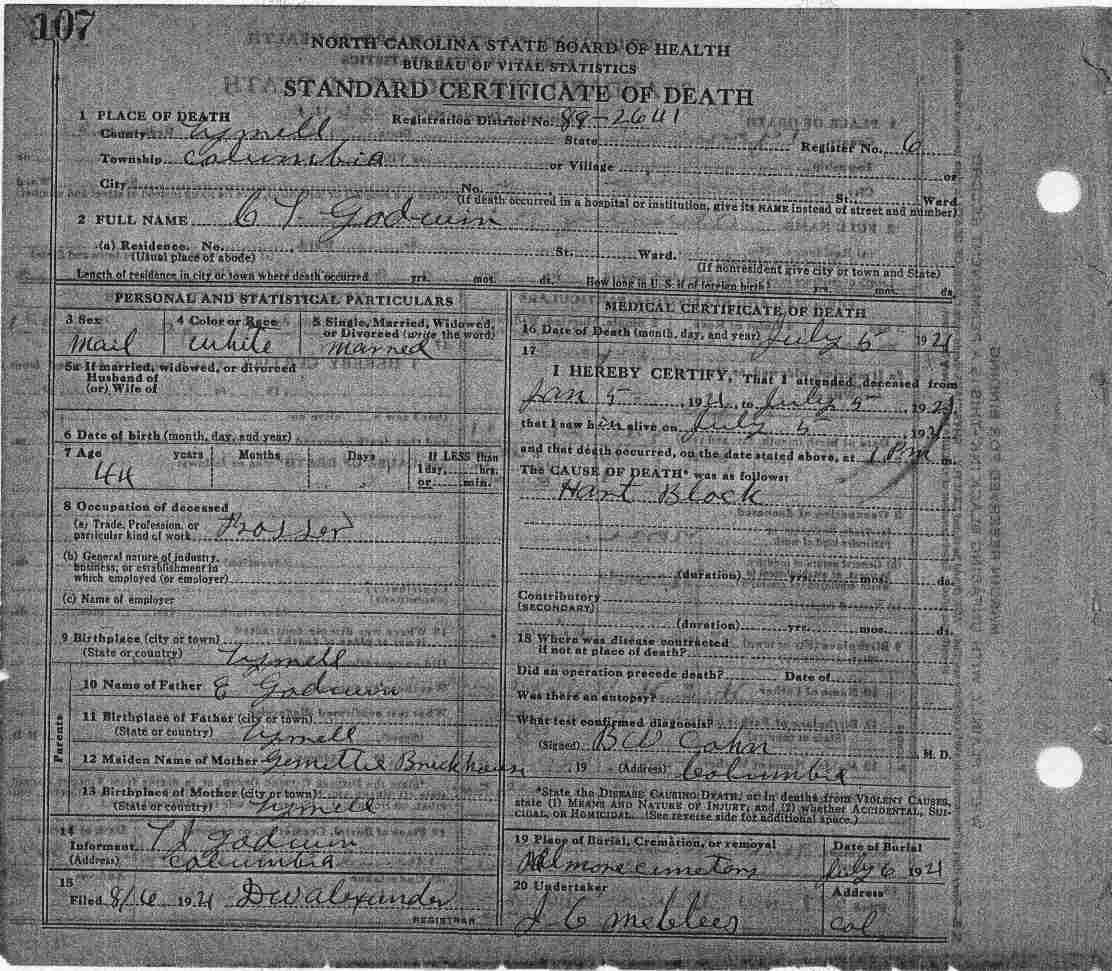 107
NORTH CAROLINA STATE BOARD OF HEALTH
BUREAU OF VITAL STATISTICS
STANDARD CERTIFICATE OF DEATH
1 PLACE OF DEATH Registration District No. 89-2641
County Tyrrell State Register No. 6
Township Columbia or Village or
City No. St. Ward
(If death occurred in a hospital or institution, give its NAME instead of street and number)
2 FULL NAME C T Godwin
(a) Residence. No. St. Ward.
(Usual place of abode) (If nonresident give city or town and State)
Length of residence in city or town where death occurred yrs. mos. ds. How long in U.S. if of foreign birth? yrs. mos. ds.
PERSONAL AND STATISTICAL PARTICULARS
3 Sex 4 Color or Race 5 Single, Married, Widowed, or Divorced (write the word)
Mail White Married
5a If married, widowed, or divorced
Husband of
(or) Wife of
6 Date of birth (month, day, and year)
7 Age years Months Days If LESS than
1 day, hrs.
or min.
44
8 Occupation of deceased
(a) Trade, Profession, or
particular kind of work
(b) General nature of industry,
business, or establishment in
which employed (or employer)
(c) Name of employer
9 Birthplace (city or town)
(State or country) Tyrrell
Parents
10 Name of Father E Godwin
11 Birthplace of Father (city or town)
(State or country) Tyrrell
12 Maiden Name of Mother
13 Birthplace of Mother (city or town)
(State or country) Tyrrell
14
Informant Godwin
(Address) Columbia
15
Filed 8/6 1921 D W Alexander
REGISTRAR
MEDICAL CERTIFICATE OF DEATH
16 Date of Death (month, day, and year) July 5 1921
17
I HEREBY CERTIFY, That I attended deceased from
Jan 5 1921, to July 5 1921
that I saw him alive on July 5 1921
and that death occurred, on the date stated above, at 1 PM m.
The CAUSE OF DEATH* was as follows:
Hart Block
(duration) yrs. mos. ds.
Contributory
(SECONDARY)
(duration) yrs. mos. ds.
18 Where was disease contracted
if not at place of death?
Did an operation precede death? Date of
Was there an autopsy?
What test confirmed diagnosis?
(Signed) B W Cohn M. D.
, 19 (Address) Columbia
*State the DISEASE CAUSING DEATH, or in deaths from VIOLENT CAUSES,
state (1) MEANS AND NATURE OF INJURY, and (2) whether ACCIDENTAL, SUI-
CIDAL, OR HOMICIDAL. (See reverse side for additional space.)
19 Place of Burial, Cremation, or removal Date of Burial
July 6 1921
20 Undertaker Address
J C McClees Col